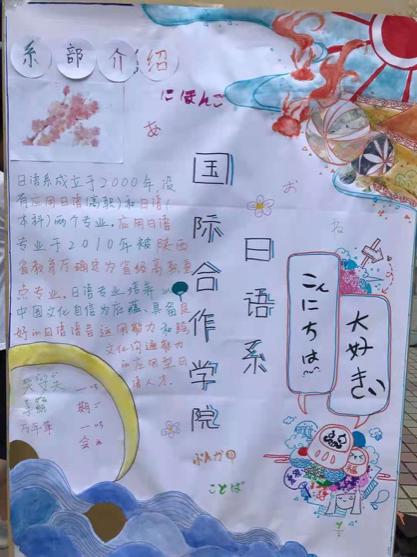 系部介绍
にほんご
あ
日语系成立于2000年,设
有应用日语(高职)和日语(
本科)两个专业,应用日语
专业于2010年被陕西
省教育厅确定为省级高职重
点专业。日语专业培养以
中国文化自信为底蕴、具备良
好的日语语言运用能力和跨
文化沟通能力
的应用型日
语人才。
国际合作学院
日语系
お
ね
こんにちは~
大好き
一
期
一
会
ぶんか
ことば